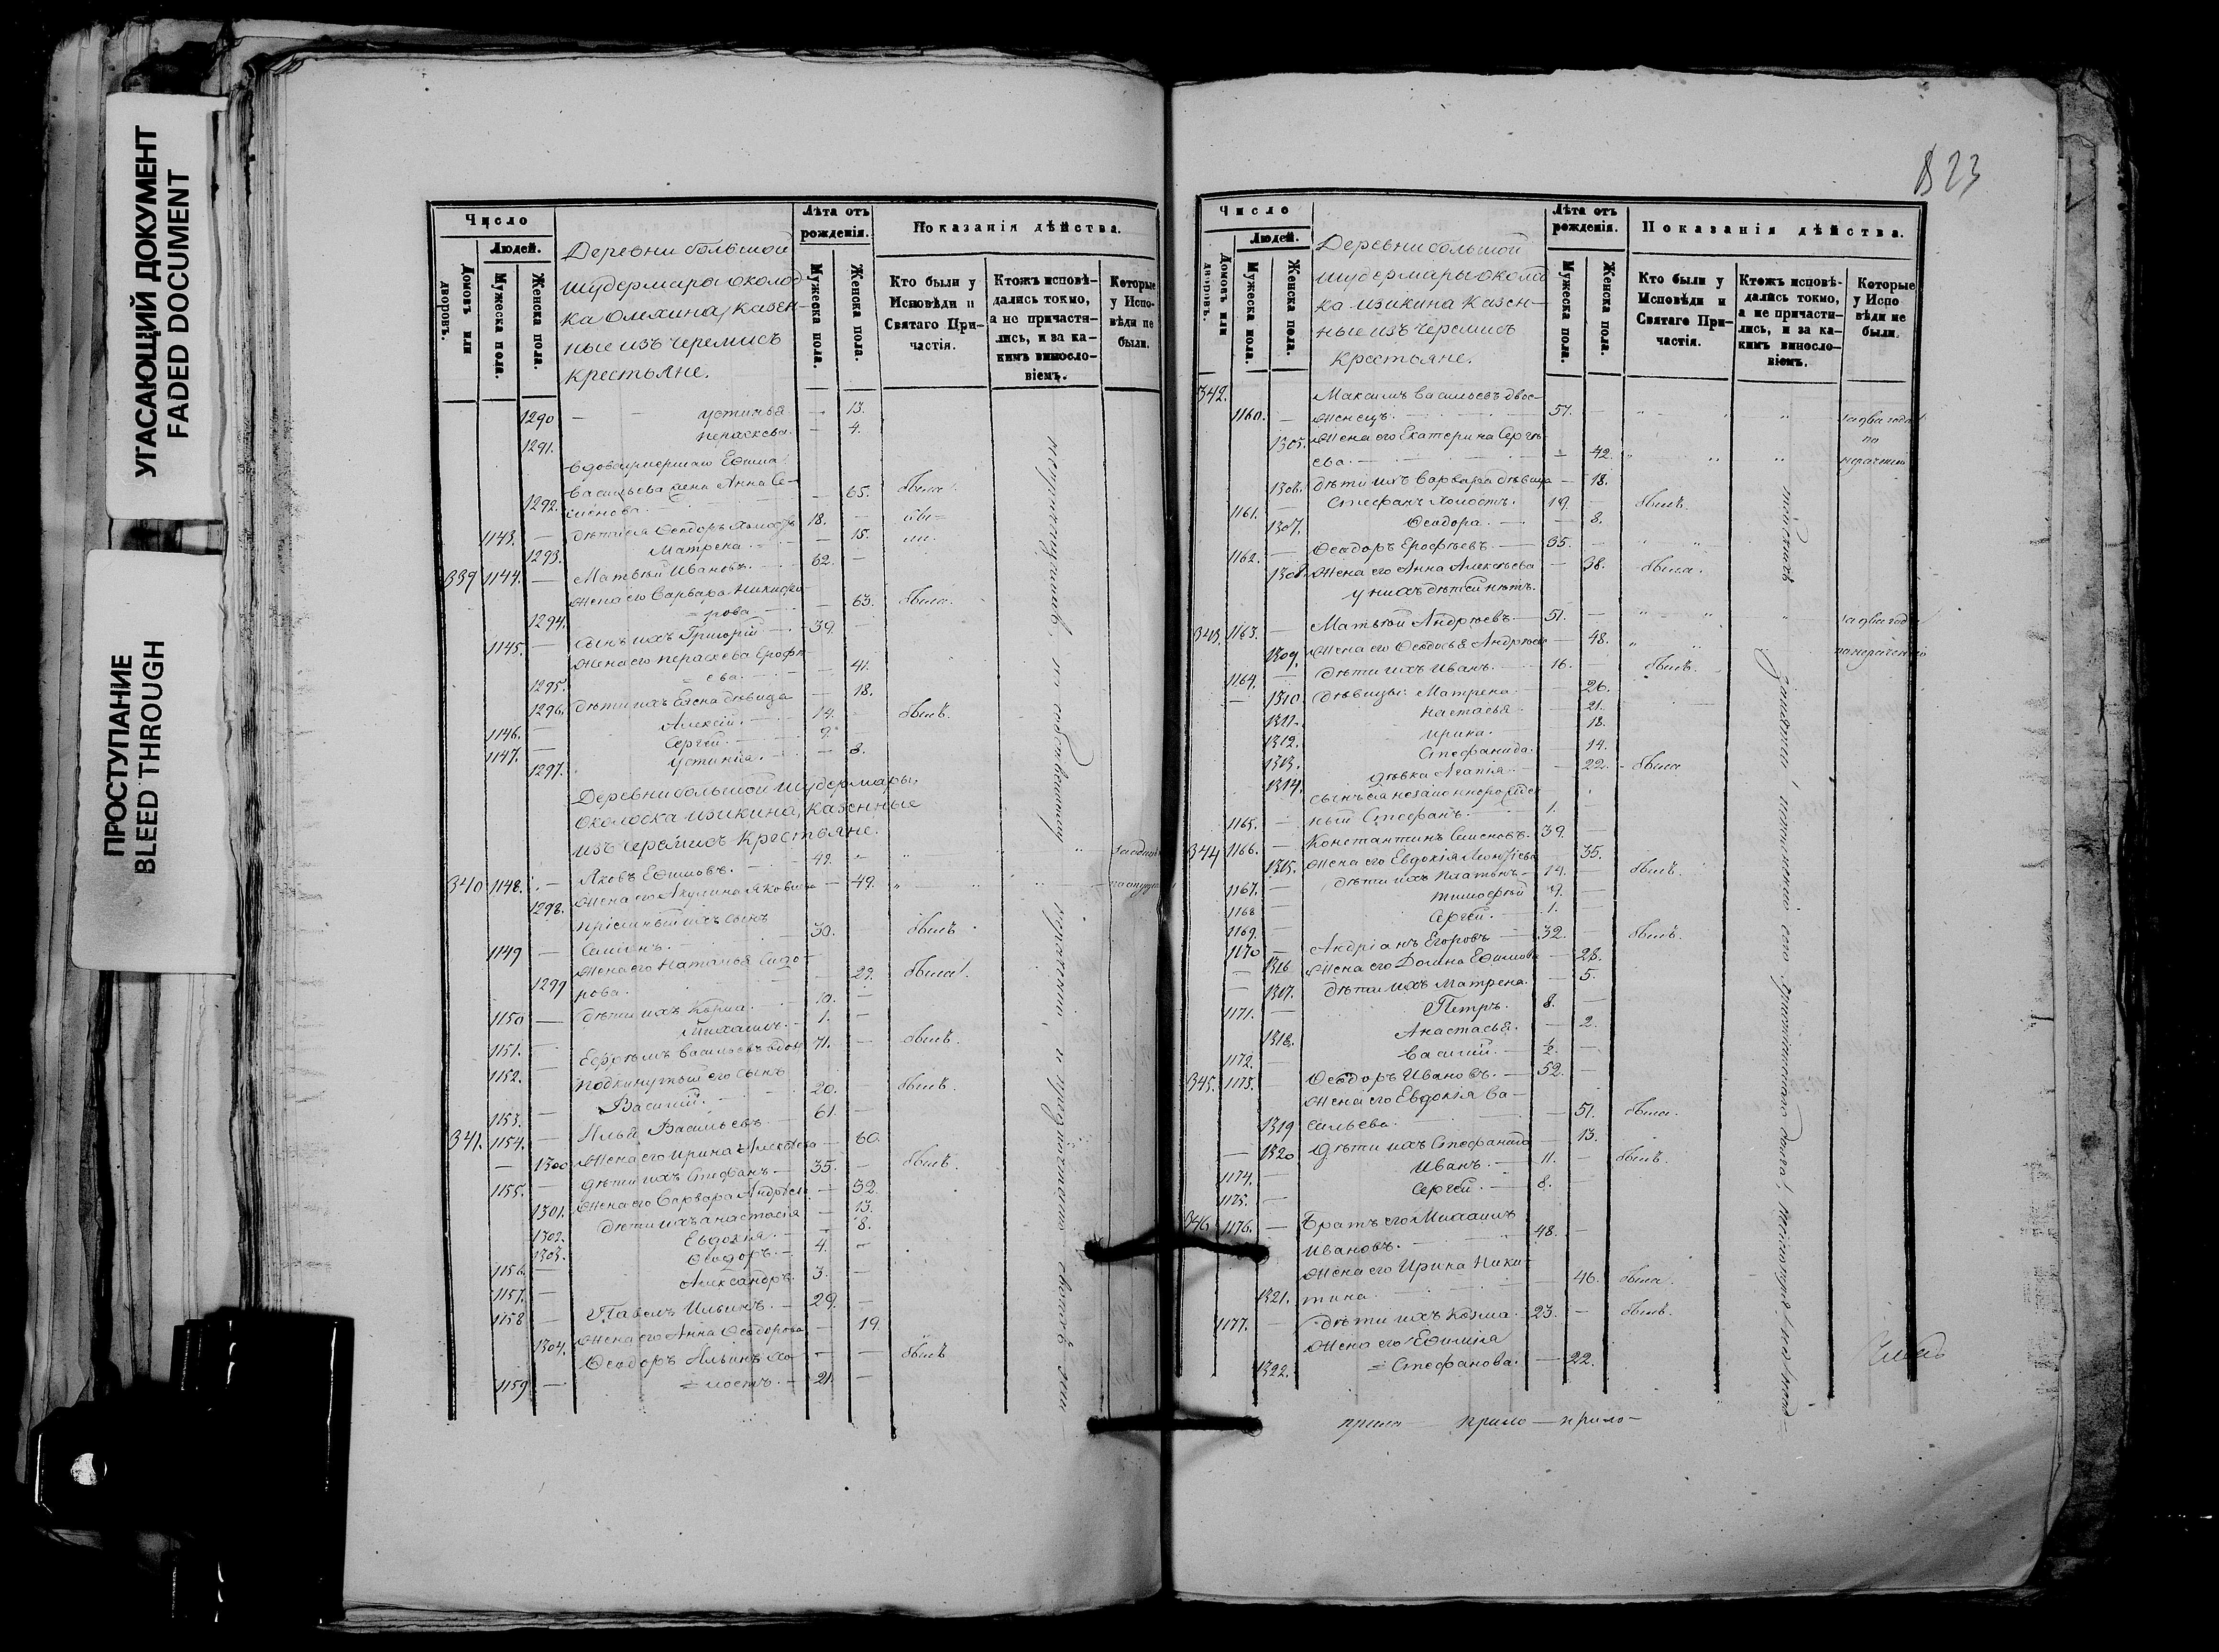 УГАСАЮЩИЙ ДОКУМЕНТ
FADED DOCUMENT
ПРОСТУПАНИЕ
BLEED THROUGH
Число
Людей.
Домовъ или дворовъ.
Мужеска пола.
Женска пола.
Деревни большой
Шудермары околод
ка Олюхина, казен-
ные изъ черемисъ
крестьяне.
Лѣта отъ рожденія.
Мужеска пола.
Женска пола.
Показанія дѣйства.
Кто были у Исповѣди и Святаго Причастія.
Ктожъ исповѣ-
дались токмо,
а не причасти-
лись, и за ка-
кимъ винослo-
віемъ.
Которые
у Испо-
вѣди не
были.
1290 — Устинья — 13.
1291. Параскева. — 4.
вдова умершаго Ефима
Васильева жена Анна Се-
1292. менова. — 65. была
1143. — дѣти ея Ѳеодоръ холостъ 18. —
1293. Матрена. — 15.
339 1144. — Матвѣй Ивановъ. 62. —
Жена его Варвара Никифо
1294. = рова. — 63. была.
1145. — сынъ ихъ Григорій — 39. —
Жена его Параскева Ероѳѣ
1295. = ева. — 41.
1296. дѣти ихъ Елена дѣвица — 18.
1146. — Алексѣй. — 14. — былъ.
1147. — Сергѣй. — 9.
1297. Устинія. — 8.
Деревни большой Шудермары,
околодка Изикина, казенные
изъ черемисъ крестьяне.
340 1148. — Яковъ Ефимовъ. — 49.
1298. Жена его Акулина Яковлева — 49.
пріемный ихъ сынъ
1149 — Семенъ. — 30. былъ
Жена его Наталья Сидо-
1299 рова. — 29. была.
1150 — дѣти ихъ Козма. 10. —
1151. — Михаилъ. — 1. —
1152. — Ефремъ Васильевъ вдовъ 71. — былъ.
подкинутый его сынъ
1153. — Василій. — 20. былъ.
341. 1154. — Илья Васильевъ 61. —
— 1300 Жена его Ирина Алексѣева — 60.
1155. — дѣти ихъ Стефанъ — 35. — былъ.
1301. Жена его Варвара Андрѣева — 32.
1302. дѣти ихъ Анастасія — 13.
1303. Евдокія. — 8.
1156. — Ѳеодоръ. — 4. —
1157. — Александръ. 3. —
1158 — Павелъ Ильинъ. — 29. —
1304. Жена его Анна Ѳеодорова — 19.
Ѳеодоръ Ильинъ хо- — — былъ
1159 — = лостъ. — 21. —
823
Число
Людей.
Домовъ или дворовъ.
Мужеска пола.
Женска пола.
Деревни большой
Шудермары околод
ка Изикина казен-
ные изъ черемисъ
крестьяне.
Лѣта отъ рожденія.
Мужеска пола.
Женска пола.
Показанія дѣйства.
Кто были у
Исповѣди и
Святаго При-
частія.
Ктожъ исповѣ-
дались токмо,
а не причасти-
лись, и за ка-
кимъ винослo-
віемъ.
Которые
у Испо
вѣди не
были.
342. Максимъ Васильевъ двое-
1160. — женецъ. 57. — за два года
по
1305. Жена его Екатерина Сергѣ-
ева. — 42. нераченію
1306. дѣти ихъ Варвара дѣвица — 18.
1161. — Стефанъ холостъ. 19. — былъ.
1307. Ѳеодора. — 8.
1162. — Ѳеодоръ Ероѳѣевъ. — 35. —
1308. Жена его Анна Алексѣева — 38. была.
у нихъ дѣтей нѣтъ.
343. 1163. — Матвѣй Андрѣевъ. — 51. — за два года
1309. Жена его Ѳеодосья Андрѣева — 48. по нераченію
1164. — дѣти ихъ Иванъ. — 16. — былъ.
— 1310 дѣвицы: Матрена. — 26.
1311. Настасья — 21.
1312. Ирина. — 18.
1313. Стефанида. 14.
1314. дѣвка Агапія. — 22. — была
сынъ ея незаконнорожден
1165. — ный Стефанъ. 1.
344 1166. — Константинъ Семеновъ. 39. —
1315. Жена его Евдокія Леонтіева 35.
1167. — дѣти ихъ Платонъ — 14. — былъ.
1168 — Тимофей 9. —
1169. — Сергѣй. — 1. —
1170 — Андріанъ Егоровъ — 32. — былъ.
— 1316 Жена его Домна Ефимова — 28.
— 1317. дѣти ихъ Матрена. — 5.
1171. — Петръ. 8. —
1318. Анастасья. — 2.
1172. — Василій. — ½. —
345. 1173. — Ѳеодоръ Ивановъ. — 52. —
Жена его Евдокія Ва-
1319 сильева. — 51. была.
— 1320 дѣти ихъ Стефанида — 13.
1174. — Иванъ. — 11. — былъ.
1175. — Сергѣй. — 8. —
346 1176. — Братъ его Михаилъ
Ивановъ. — 48. —
Жена его Ирина Ники-
1321. тина. — 46. была.
1177. — дѣти ихъ Козма. 23. — былъ.
Жена его Ефимія
1322. = Стефанова. — 22.